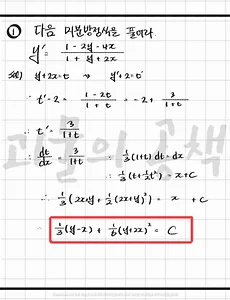 ① 다음 미분방정식을 풀어라.
y' = (1 - 2y - 4x) / (1 + y + 2x)
sol) y + 2x = t → y' + 2 = t'
∴ t' - 2 = (1 - 2t) / (1 + t) = -2 + 3 / (1 + t)
∴ t' = 3 / (1 + t)
∴ dt/dx = 3 / (1 + t) ∴ 1/3 (1+t) dt = dx
∴ 1/3 (t + 1/2 t²) = x + C
∴ 1/3 (2x + y + 1/2 (2x + y)²) = x + C
1/3 (y - x) + 1/6 (y + 2x)² = C
괴물의 공책